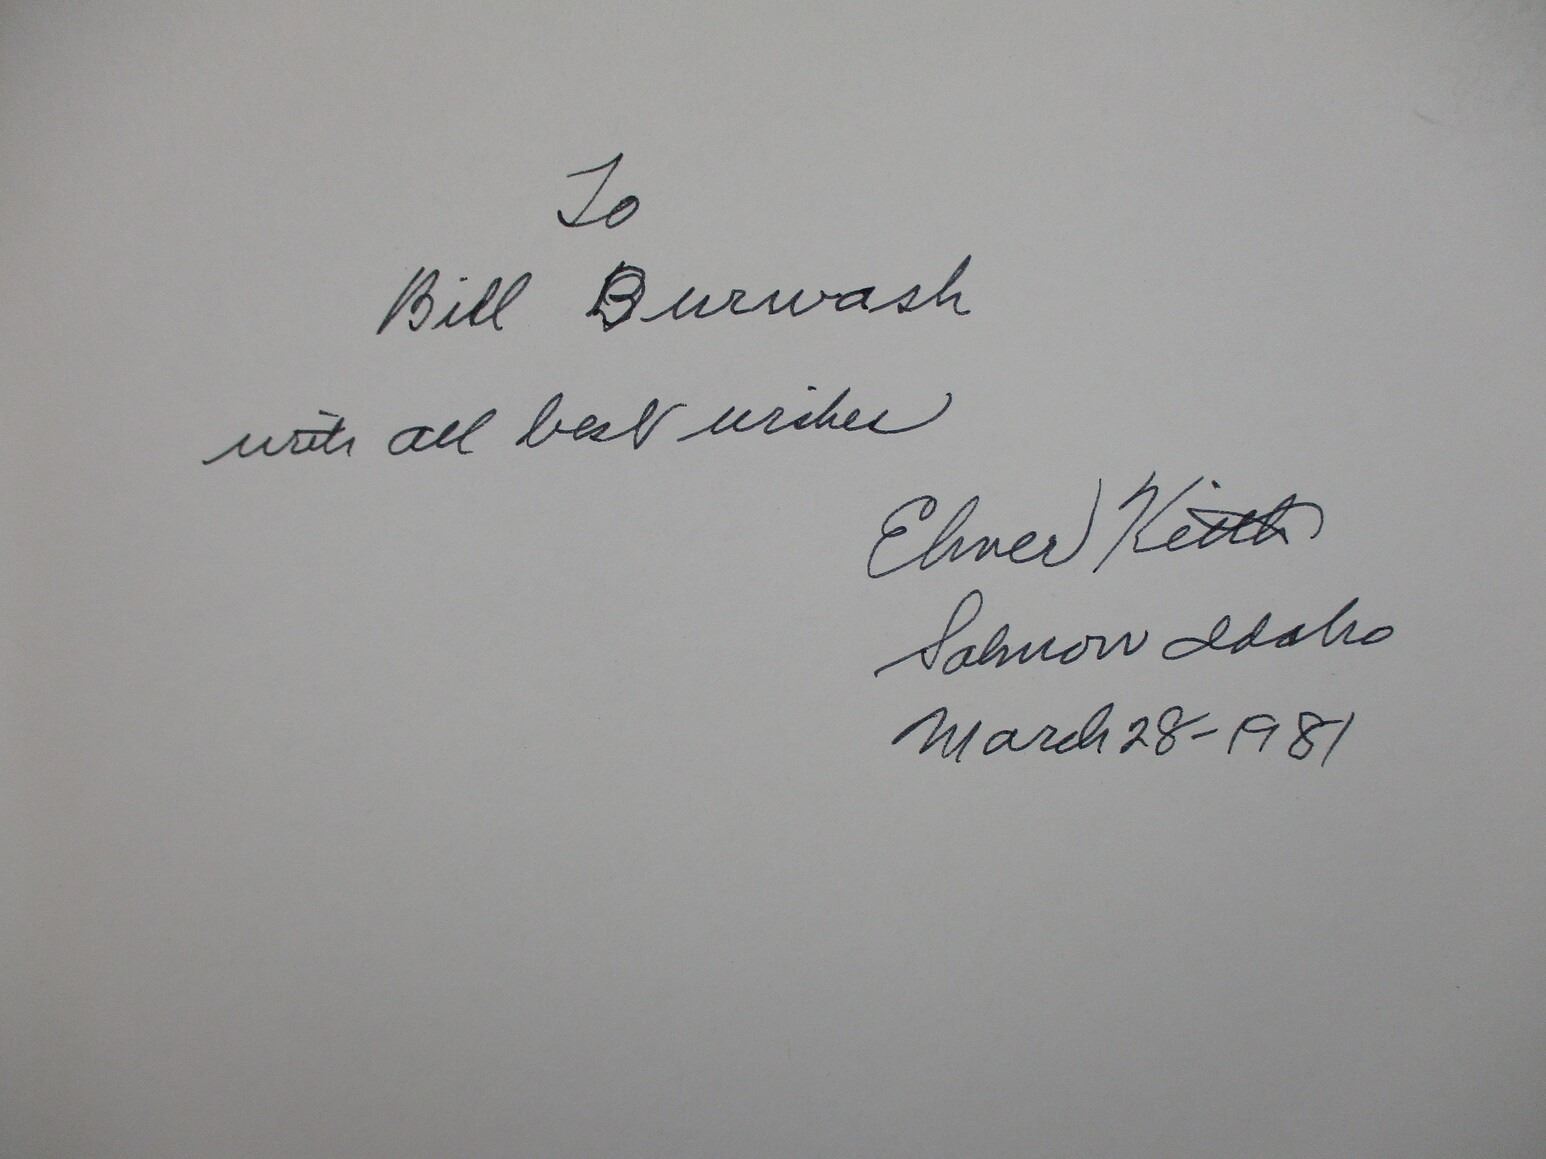 To
Bill Burwash
with all best wishes
Elmer Keith
Salmon Idaho
March 28-1981